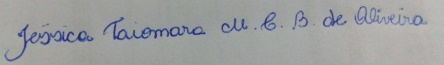 Jessica Taiomara M. C. B. de Oliveira